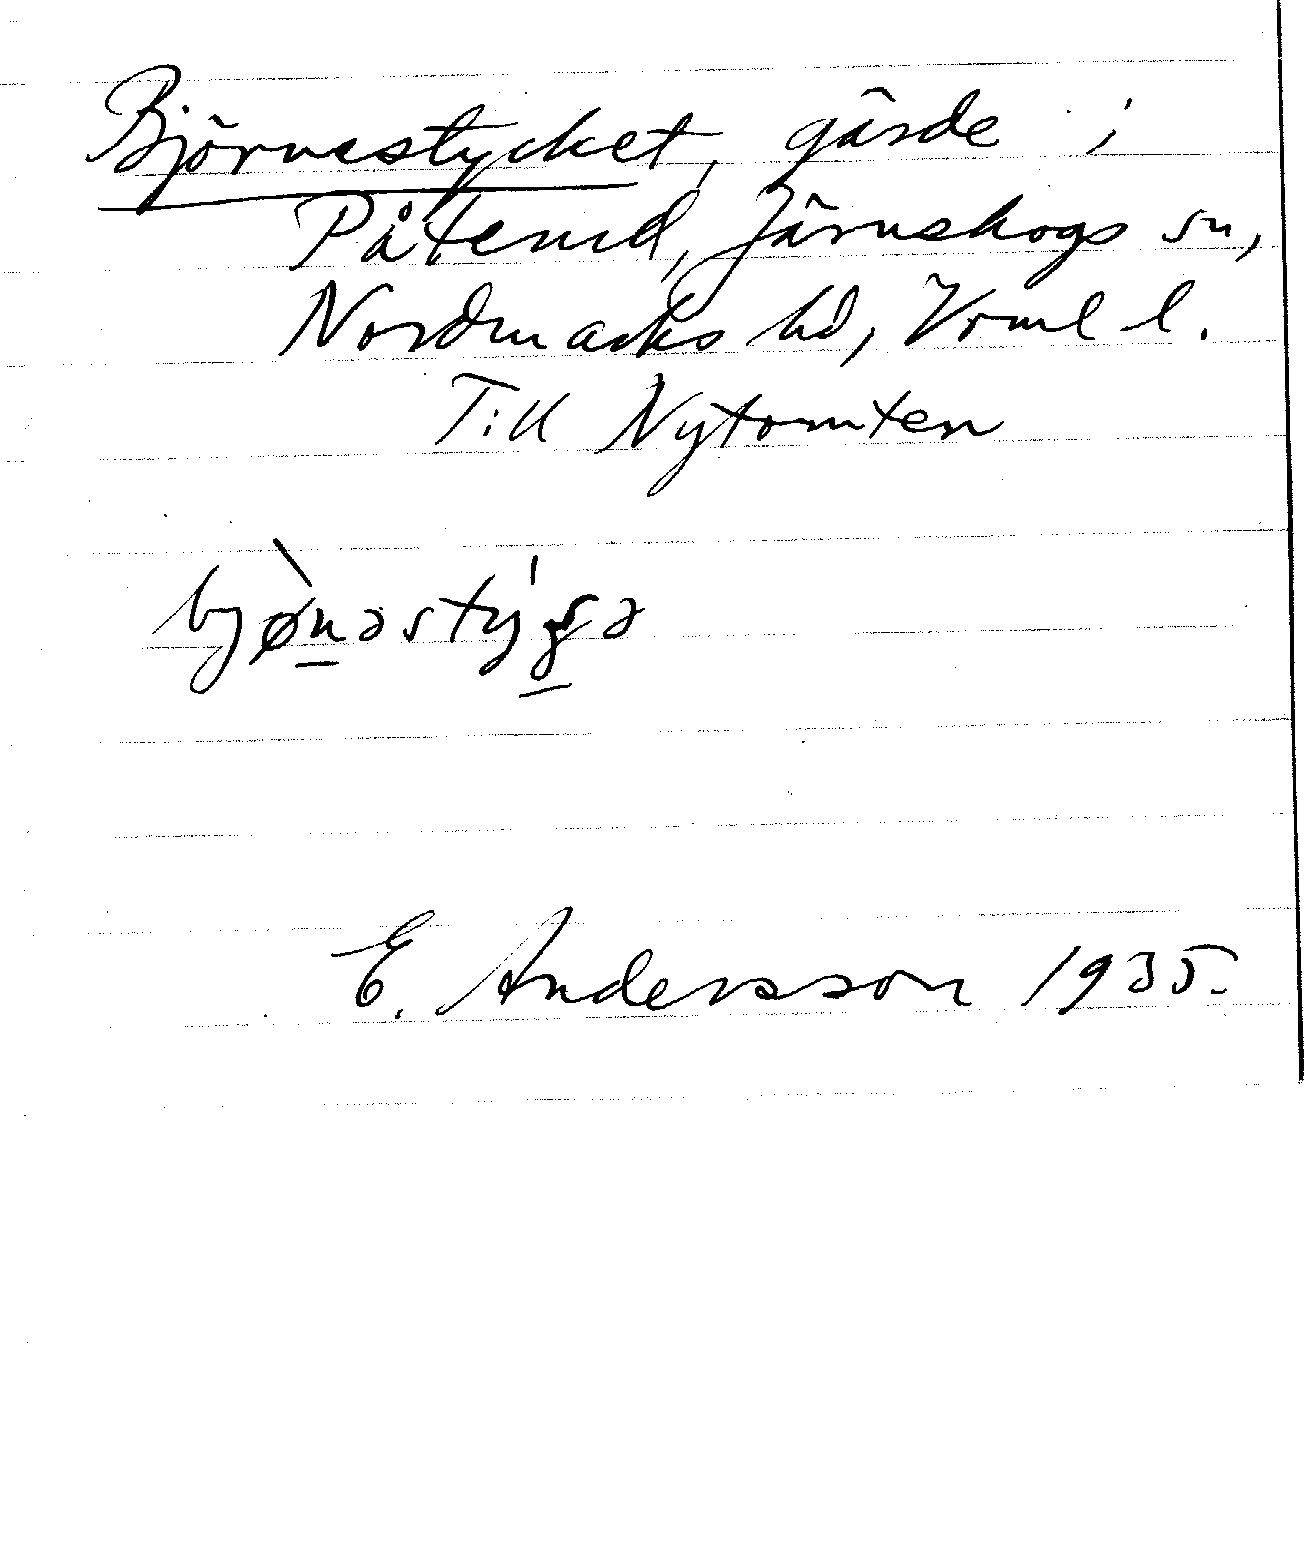 Björnestycket, gärde i
Påterud, Järnskogs sn,
Nordmarks hd, Vrml l.
Till Nytomten
bjø̀nəstýgə
E. Andersson 1935.